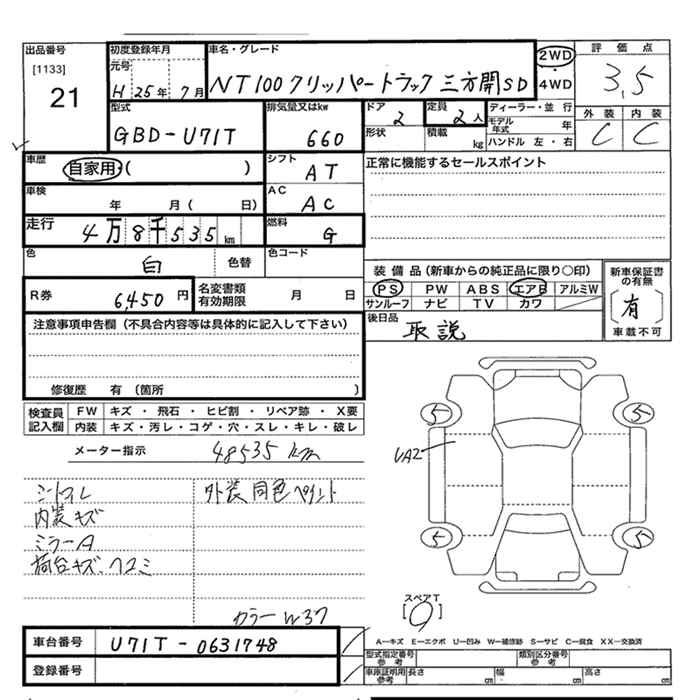 出品番号
[1133]
21
初度登録年月
元号
H 25年 7月
車名・グレード
NT100クリッパートラック 三方開SD
2WD
・
4WD
評価点
3,5
外装 内装
C C
型式
GBD-U71T
排気量又はkw
660
ドア
2
定員
2人
形状
積載
kg
ディーラー・並行
モデル年式 年
ハンドル 左・右
車歴
自家用・( )
シフト
AT
正常に機能するセールスポイント
車検
年 月( 日)
AC
AC
走行
4万8千535km
燃料
G
色
白
色替
色コード
装備品(新車からの純正品に限り○印)
PS PW ABS エアB アルミW
サンルーフ ナビ TV カワ
新車保証書の有無
[有]
車載不可
R券
6,450円
名変書類有効期限
月 日
後日品
取説
注意事項申告欄(不具合内容等は具体的に記入して下さい)
修復歴 有(箇所 )
検査員記入欄
FW キズ・飛石・ヒビ割・リペア跡・X要
内装 キズ・汚レ・コゲ・穴・スレ・キレ・破レ
メーター指示
48535 km
シートスレ
内装キズ
ミラーA
荷台キズ、クエミ
外装同色ペイント
カラーW37
5 5
UA2
5 5
スペアT
[ ]
A―キズ E―エクボ U―凹み W―補修跡 S―サビ C―腐食 XX―交換済
車台番号
U71T-0631748
登録番号
型式指定番号参考
類別区分番号参考
車庫証明用参考
長さ cm
幅 cm
高さ cm